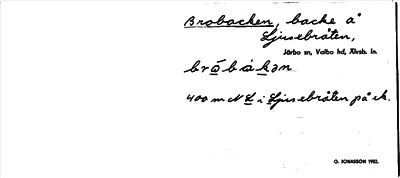 Brobacken, backe å
Ljusebråten,
Järbo sn, Valbo hd, Älvsb. ln.
400 m N L i Ljusebråten på ek.
G. JONASSON 1982.